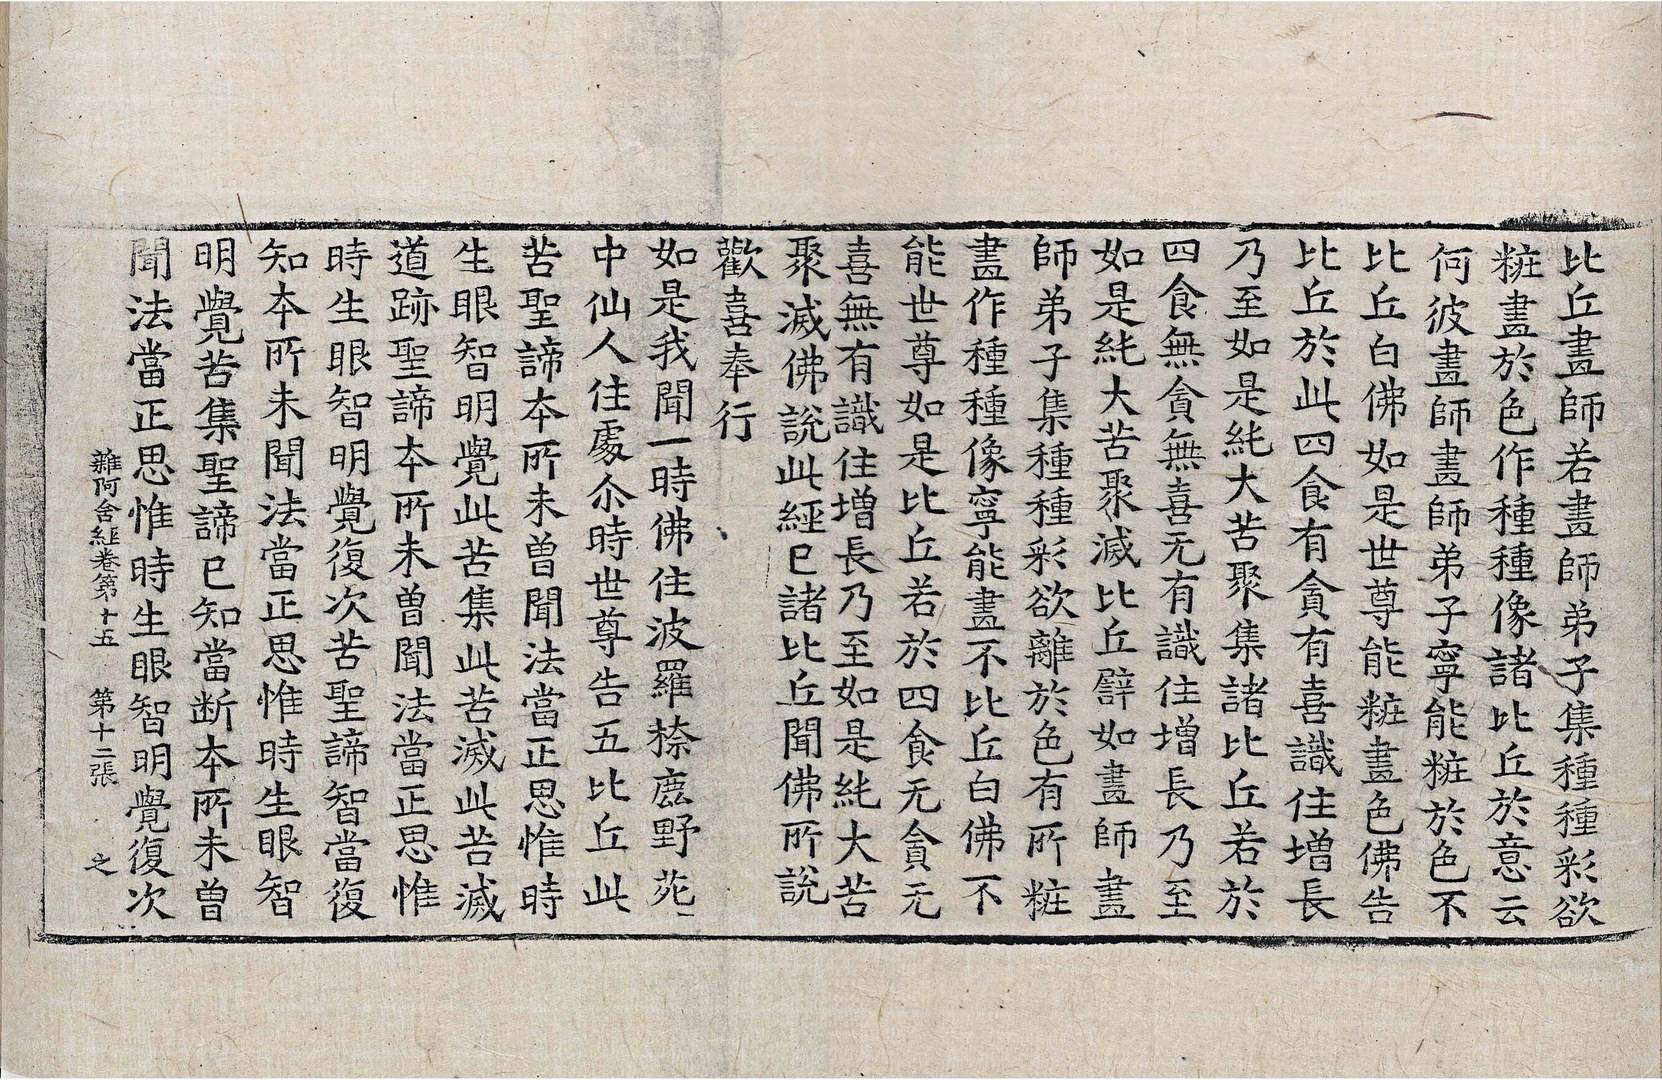 比丘畫師若畫師弟子集種種彩欲
粧畫於色作種種像諸比丘於意云
何彼畫師畫師弟子寧能粧於色不
比丘白佛如是世尊能粧畫色佛告
比丘於此四食有貪有喜識住增長
乃至如是純大苦聚集諸比丘若於
四食無貪無喜无有識住增長乃至
如是純大苦聚滅比丘譬如畫師畫
師弟子集種種彩欲離於色有所粧
畫作種種像寧能畫不比丘白佛不
能世尊如是比丘若於四食无貪无
喜無有識住增長乃至如是純大苦
聚滅佛說此經已諸比丘聞佛所說
歡喜奉行
如是我聞一時佛住波羅㮈鹿野苑
中仙人住處尒時世尊告五比丘此
苦聖諦本所未曾聞法當正思惟時
生眼智明覺此苦集此苦滅此苦滅
道跡聖諦本所未曾聞法當正思惟
時生眼智明覺復次苦聖諦智當復
知本所未聞法當正思惟時生眼智
明覺苦集聖諦已知當断本所未曾
聞法當正思惟時生眼智明覺復次
雜阿含經卷第十五 第十二張 之